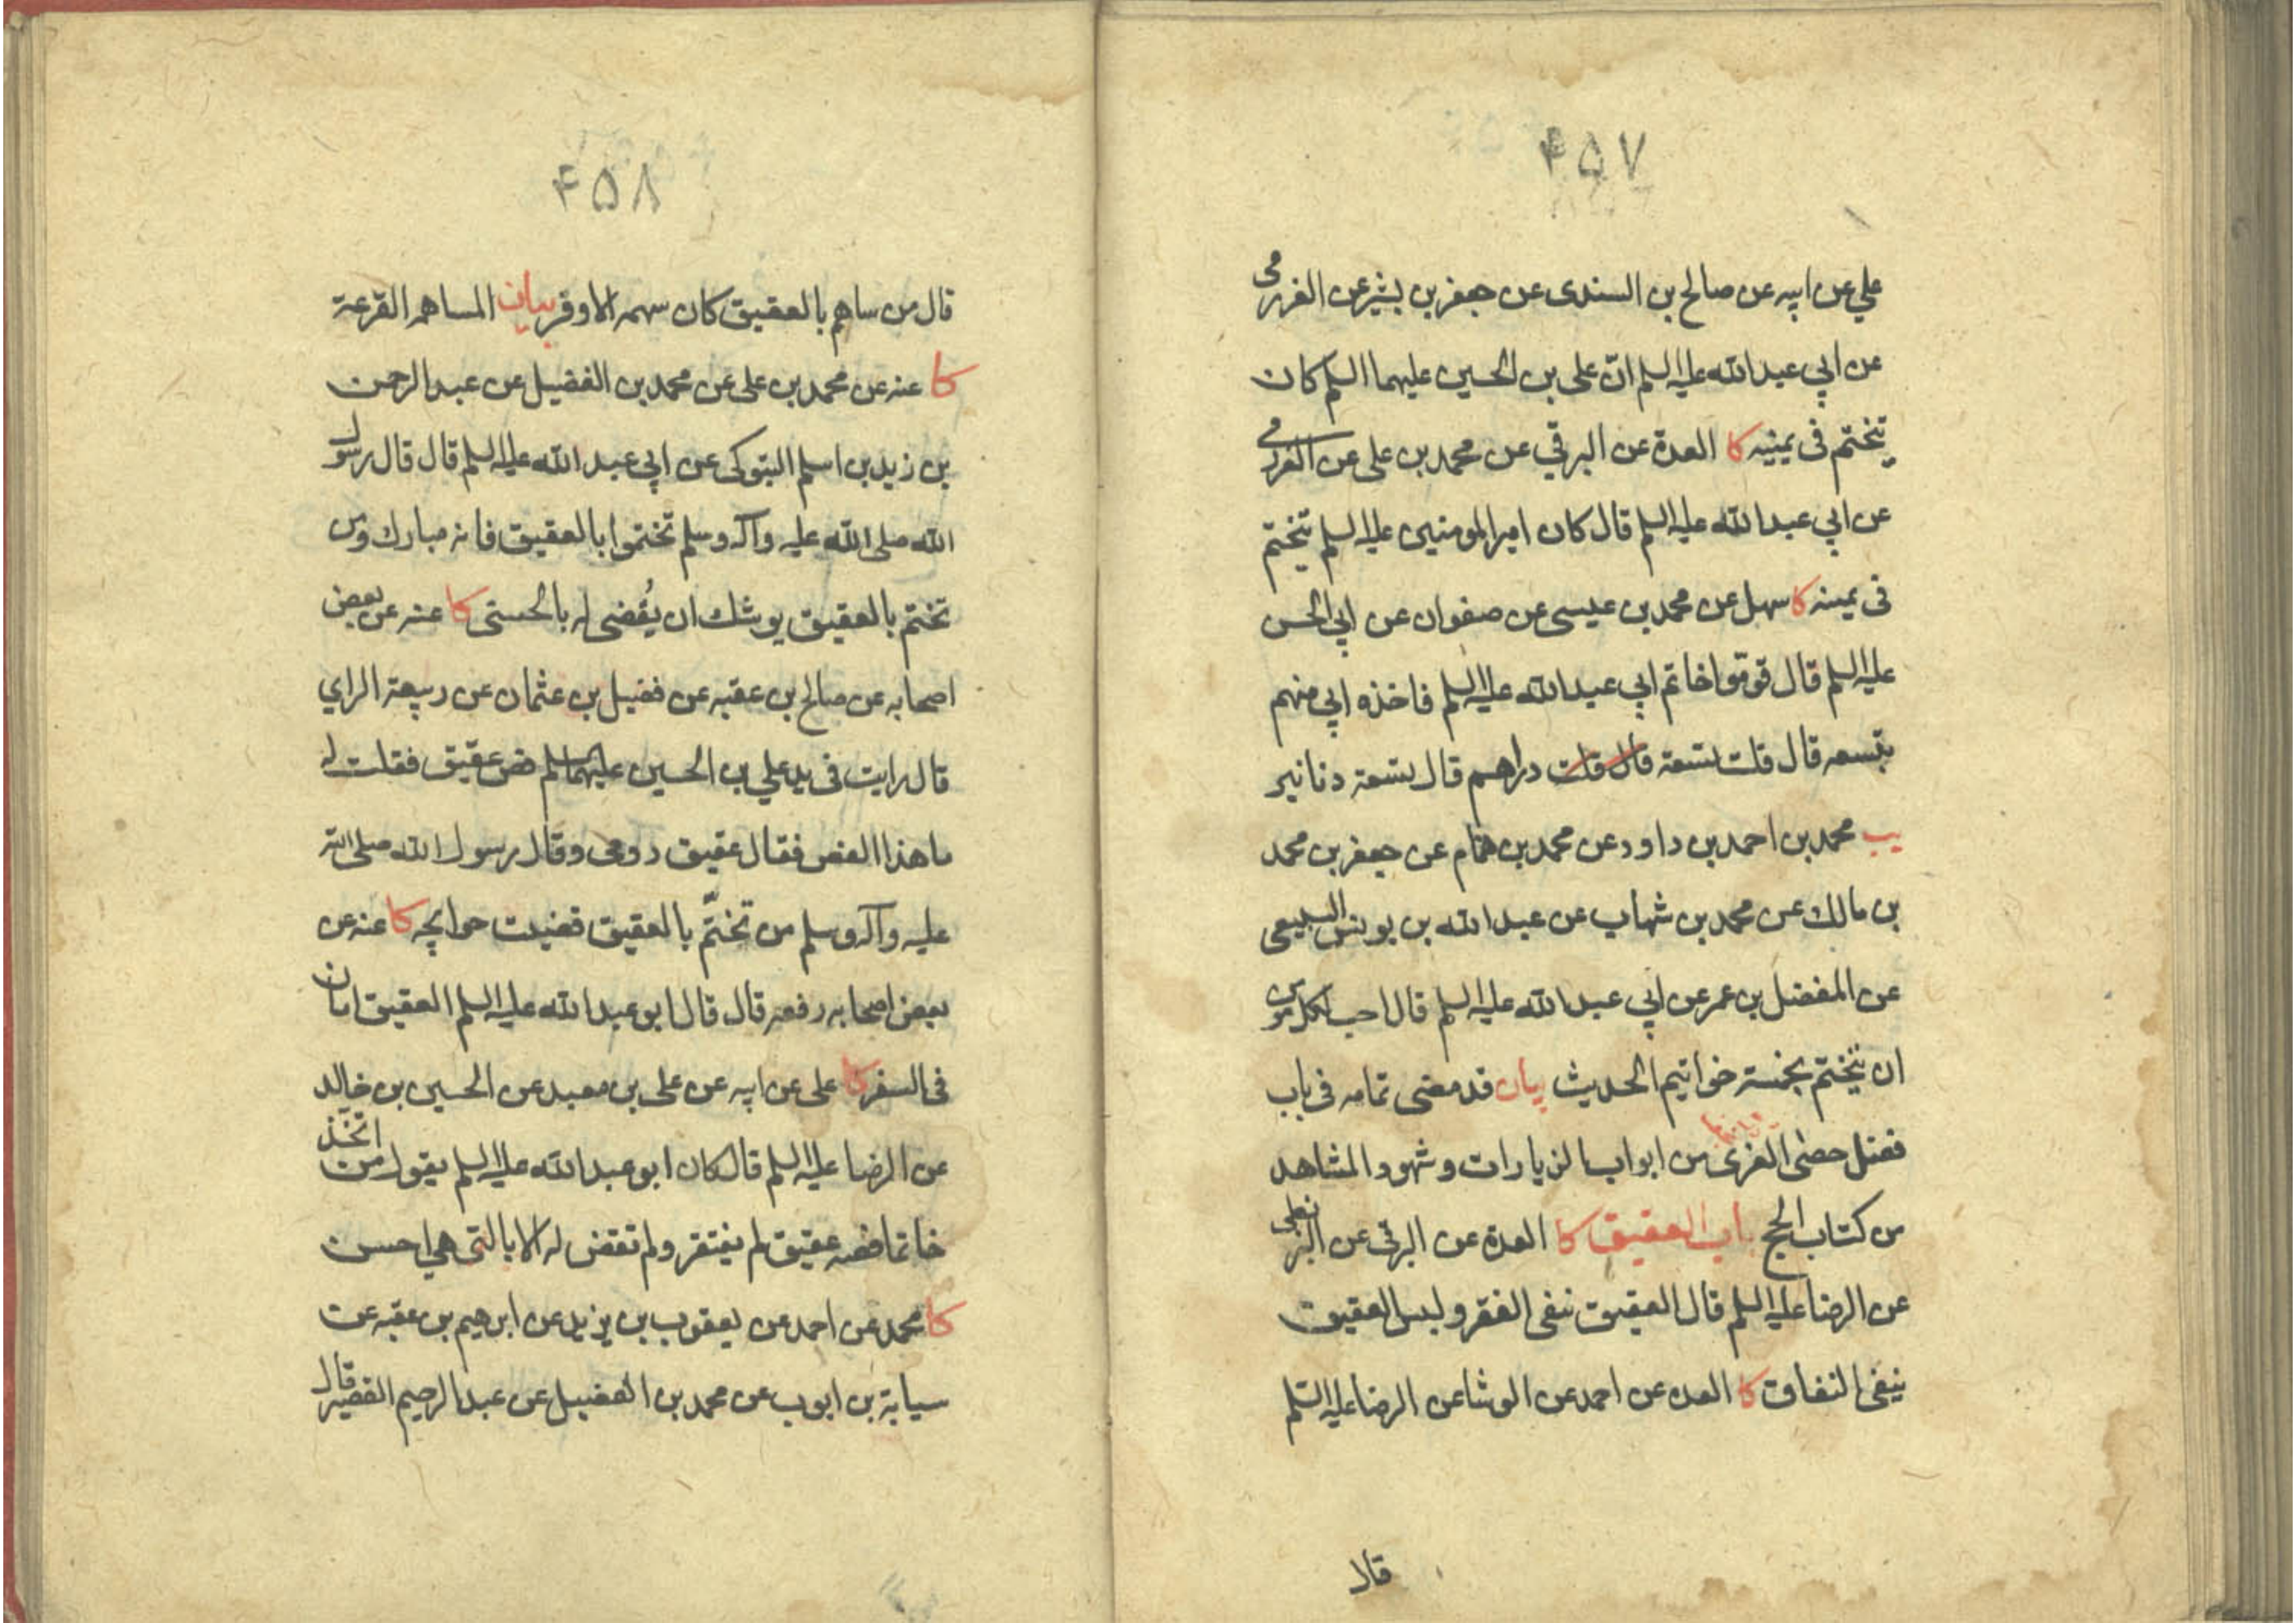 ۴۵۷
علي عن ابيه عن صالح بن السندى عن جعفر بن بشير عن العرزمى
عن ابي عبد الله عليه السلم انّ على بن الحسين عليهما السلم كان
يتختم فى يمينه كا العدة عن البرقي عن محمد بن على عن العرزمي
عن ابي عبد الله عليه السلم قال كان امير المومنين عليه السلم يتختم
فى يمينه كا سهل عن محمد بن عيسى عن صفوان عن ابي الحسن
عليه السلم قال قوّموا خاتم ابي عبد الله عليه السلم فاخذه ابي منهم
بتسعه قال قلت بتسعة قال قلت دراهم قال بتسعة دنانير
يب محمد بن احمد بن داود عن محمد بن همّام عن جعفر بن محمد
بن مالك عن محمد بن شهاب عن عبد الله بن يونس السبيعى
عن المفضل بن عمر عن ابي عبد الله عليه السلم قال احب لكل مومن
ان يتختم بخمسة خواتيم الحديث بيان قد مضى تمامه فى باب
فضل حصى الغرى من ابواب الزيارات وشهود المشاهد
من كتاب الحج باب العقيق كا العدة عن البرقى عن البزنطى
عن الرضا عليه السلم قال العقيق ينفى الفقر ولبس العقيق
ينفى النفاق كا العده عن احمد عن الوشا عن الرضا عليه السّلم
قال
۴۵۸
قال من ساهم بالعقيق كان سهمه الاوفر بيان المساهمه القرعة
كا عنه عن محمد بن على عن محمد بن الفضيل عن عبد الرحمن
بن زيد بن اسلم التبوكى عن ابي عبد الله عليه السلم قال قال رسول
الله صلى الله عليه وآله وسلم تختموا بالعقيق فانه مبارك ومن
تختم بالعقيق يوشك ان يُقضى له بالحسنى كا عنه عن بعض
اصحابه عن صالح بن عقبه عن فضيل بن عثمان عن ربيعة الراي
قال رايت فى يد علي بن الحسين عليهما السلم فص عقيق فقلت له
ما هذا الفص فقال عقيق رومى وقال رسول الله صلى الله
عليه وآله وسلم من تختّم بالعقيق قضيت حوايجه كا عنه عن
بعض اصحابه رفعه قال قال ابو عبد الله عليه السلم العقيق امان
فى السفر كا على عن ابيه عن على بن معبد عن الحسين بن خالد
عن الرضا عليه السلم قال كان ابو عبد الله عليه السلم يقول من اتخذ
خاتما فصه عقيق لم يفتقر ولم تقض له الا بالتى هي احسن
كا محمد عن احمد عن يعقوب بن يزيد عن ابرهيم بن عقبه عن
سيابة بن ايوب عن محمد بن الفضيل عن عبد الرحيم القصير قال